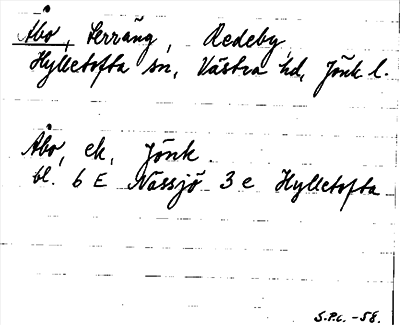 Åbo, terräng, Redeby,
Hylletofta sn, Västra hd, Jönk l.
Åbo, ek, Jönk.
bl. 6 E Nässjö 3 e Hylletofta
S.P.L. -58.